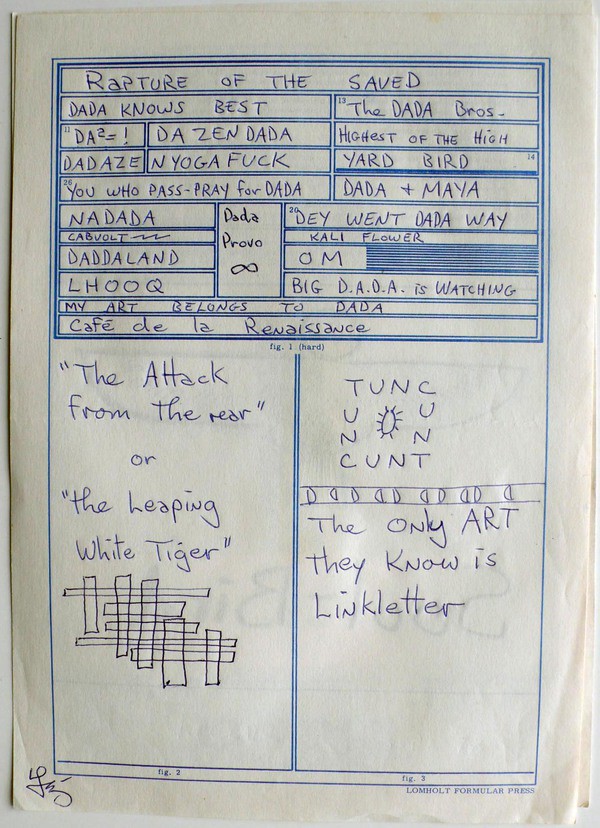 RAPTURE OF THE SAVED
DADA KNOWS BEST
13 The DADA Bros.
11 DA²=! DA ZEN DADA
HIGHEST OF THE HIGH
DADAZEN YOGA FUCK
YARD BIRD 14
26 YOU WHO PASS-PRAY for DADA
DADA + MAYA
NADADA
Dada
20 DEY WENT DADA WAY
CABVOLT
Provo
KALI FLOWER
DADDALAND
∞
OM
LHOOQ
BIG D.A.D.A. iS WATCHING
MY ART BELONGS TO DADA
Café de la Renaissance
fig. 1 (hard)
"The Attack
from the rear"
or
"the Leaping
White Tiger"
TUNC
U U
N N
CUNT
The Only ART
they Know is
Linkletter
fig. 2
fig. 3
LOMHOLT FORMULAR PRESS